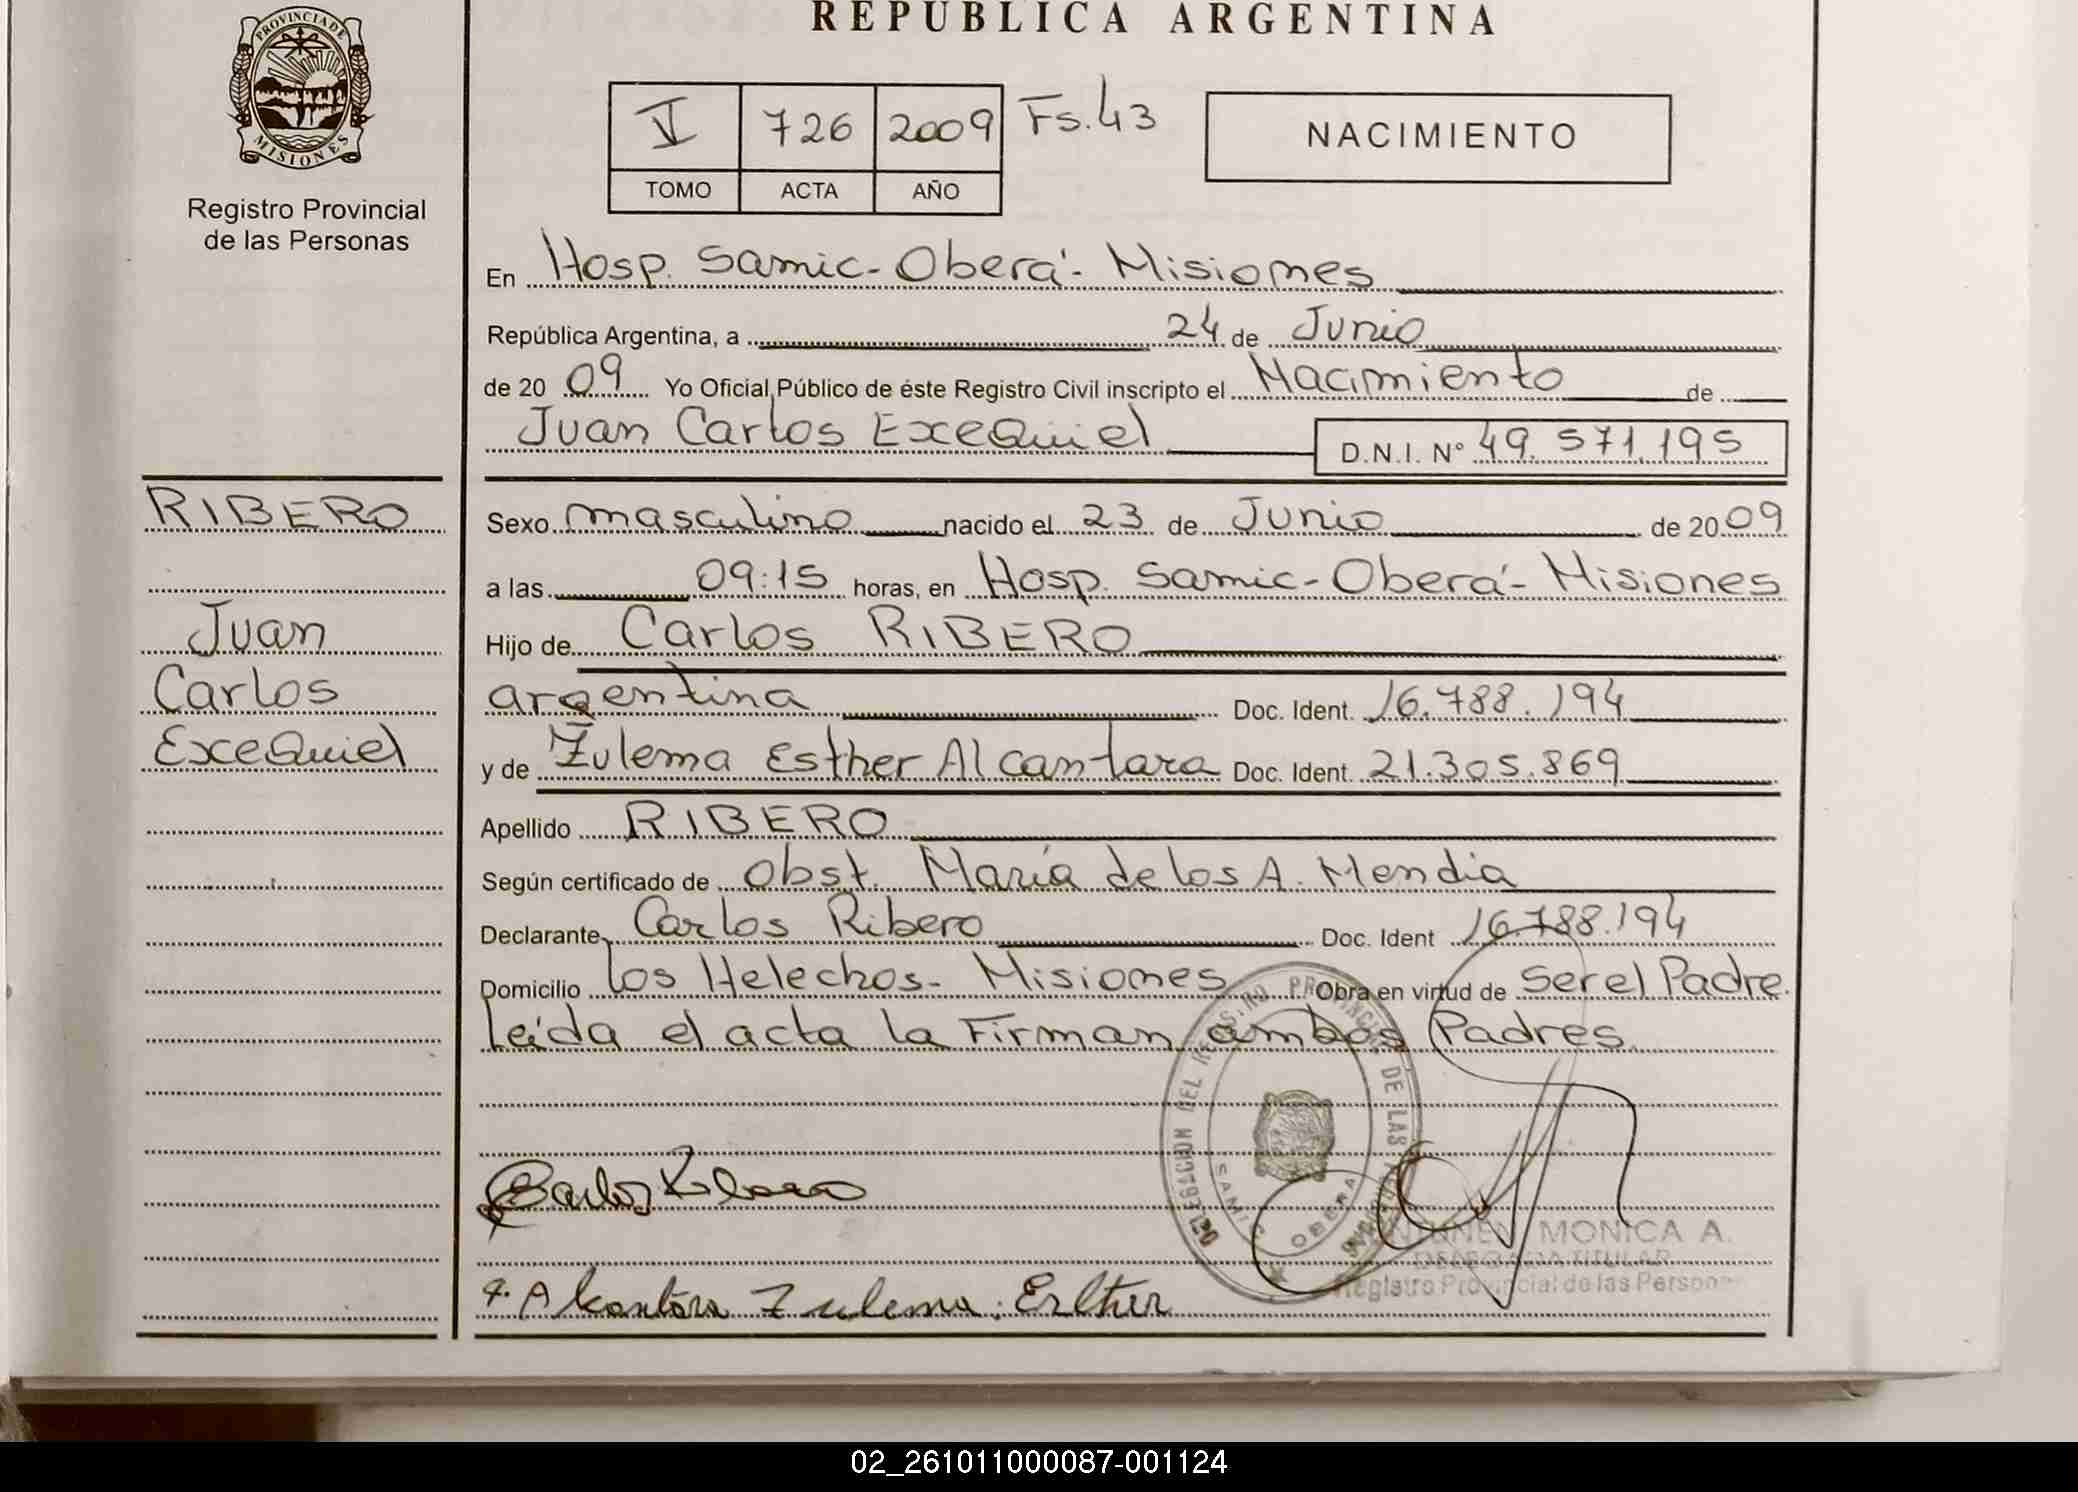 REPUBLICA ARGENTINA
PROVINCIA DE
MISIONES
Registro Provincial
de las Personas
V 726 2009 Fs. 43
TOMO ACTA AÑO
NACIMIENTO
En Hosp. Samic - Oberá - Misiones
República Argentina, a 24 de Junio
de 2009 Yo Oficial Público de éste Registro Civil inscripto el Nacimiento de
Juan Carlos Exequiel D.N.I. N° 49.571.195
RIBERO
Juan
Carlos
Exequiel
Sexo masculino nacido el 23 de Junio de 2009
a las 09:15 horas, en Hosp. Samic - Oberá - Misiones
Hijo de Carlos RIBERO
argentina Doc. Ident. 16.788.194
y de Zulema Esther Alcantara Doc. Ident. 21.305.869
Apellido RIBERO
Según certificado de Obst. María de los A. Mendia
Declarante Carlos Ribero Doc. Ident 16.788.194
Domicilio Los Helechos - Misiones Obra en virtud de Ser el Padre.
leída el acta la Firman ambos Padres.
DELEGACION DEL REGISTRO PROVINCIAL DE LAS PERSONAS
SAMIC OBERA
Carlos Ribero
MONICA A.
DELEGADA TITULAR
Registro Provincial de las Person
Alcantara Zulema Esther
02_261011000087-001124